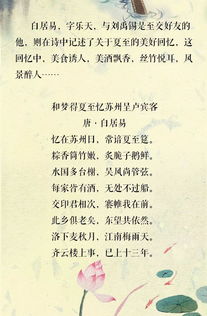 白居易，字乐天，与刘禹锡是至交好友的
他，则在诗中记述了关于夏至的美好回忆，这
回忆中，美食诱人，美酒飘香，丝竹悦耳，风
景醉人……
和梦得夏至忆苏州呈卢宾客
唐·白居易
忆在苏州日，常谙夏至筵。
粽香筒竹嫩，炙脆子鹅鲜。
水国多台榭，吴风尚管弦。
每家皆有酒，无处不过船。
交印君相次，褰帷我在前。
此乡俱老矣，东望共依然。
洛下麦秋月，江南梅雨天。
齐云楼上事，已上十三年。